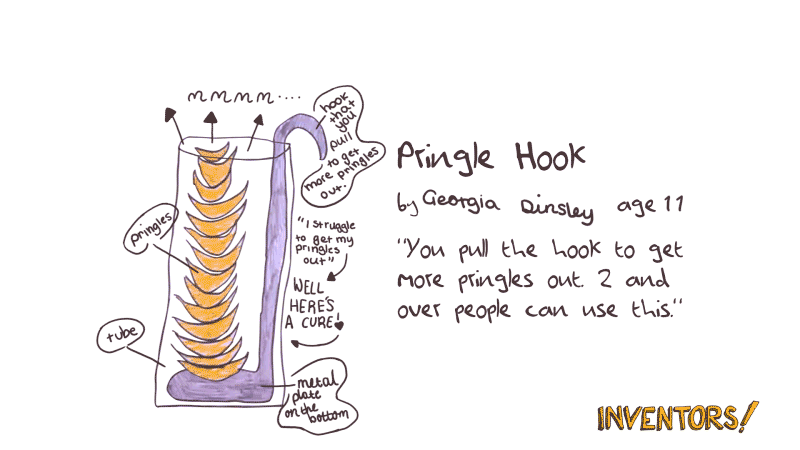 mmmm....
hook
that
you
pull
to get
more pringles
out.
pringles
"I struggle
to get my
pringles
out"
WELL
HERE'S
A CURE!
tube
metal
plate
on the
bottom
Pringle Hook
by Georgia Dinsley age 11
"You pull the hook to get
more pringles out. 2 and
over people can use this."
INVENTORS!